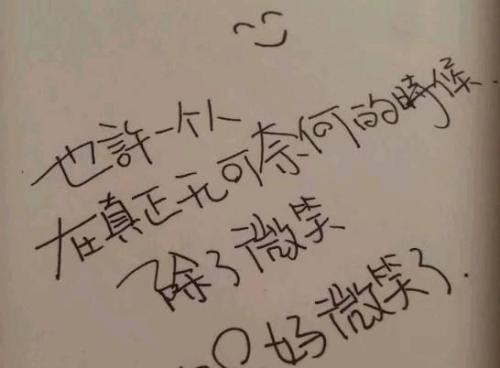 也許一个人
在真正无可奈何的時候.
除了微笑
只好微笑了.